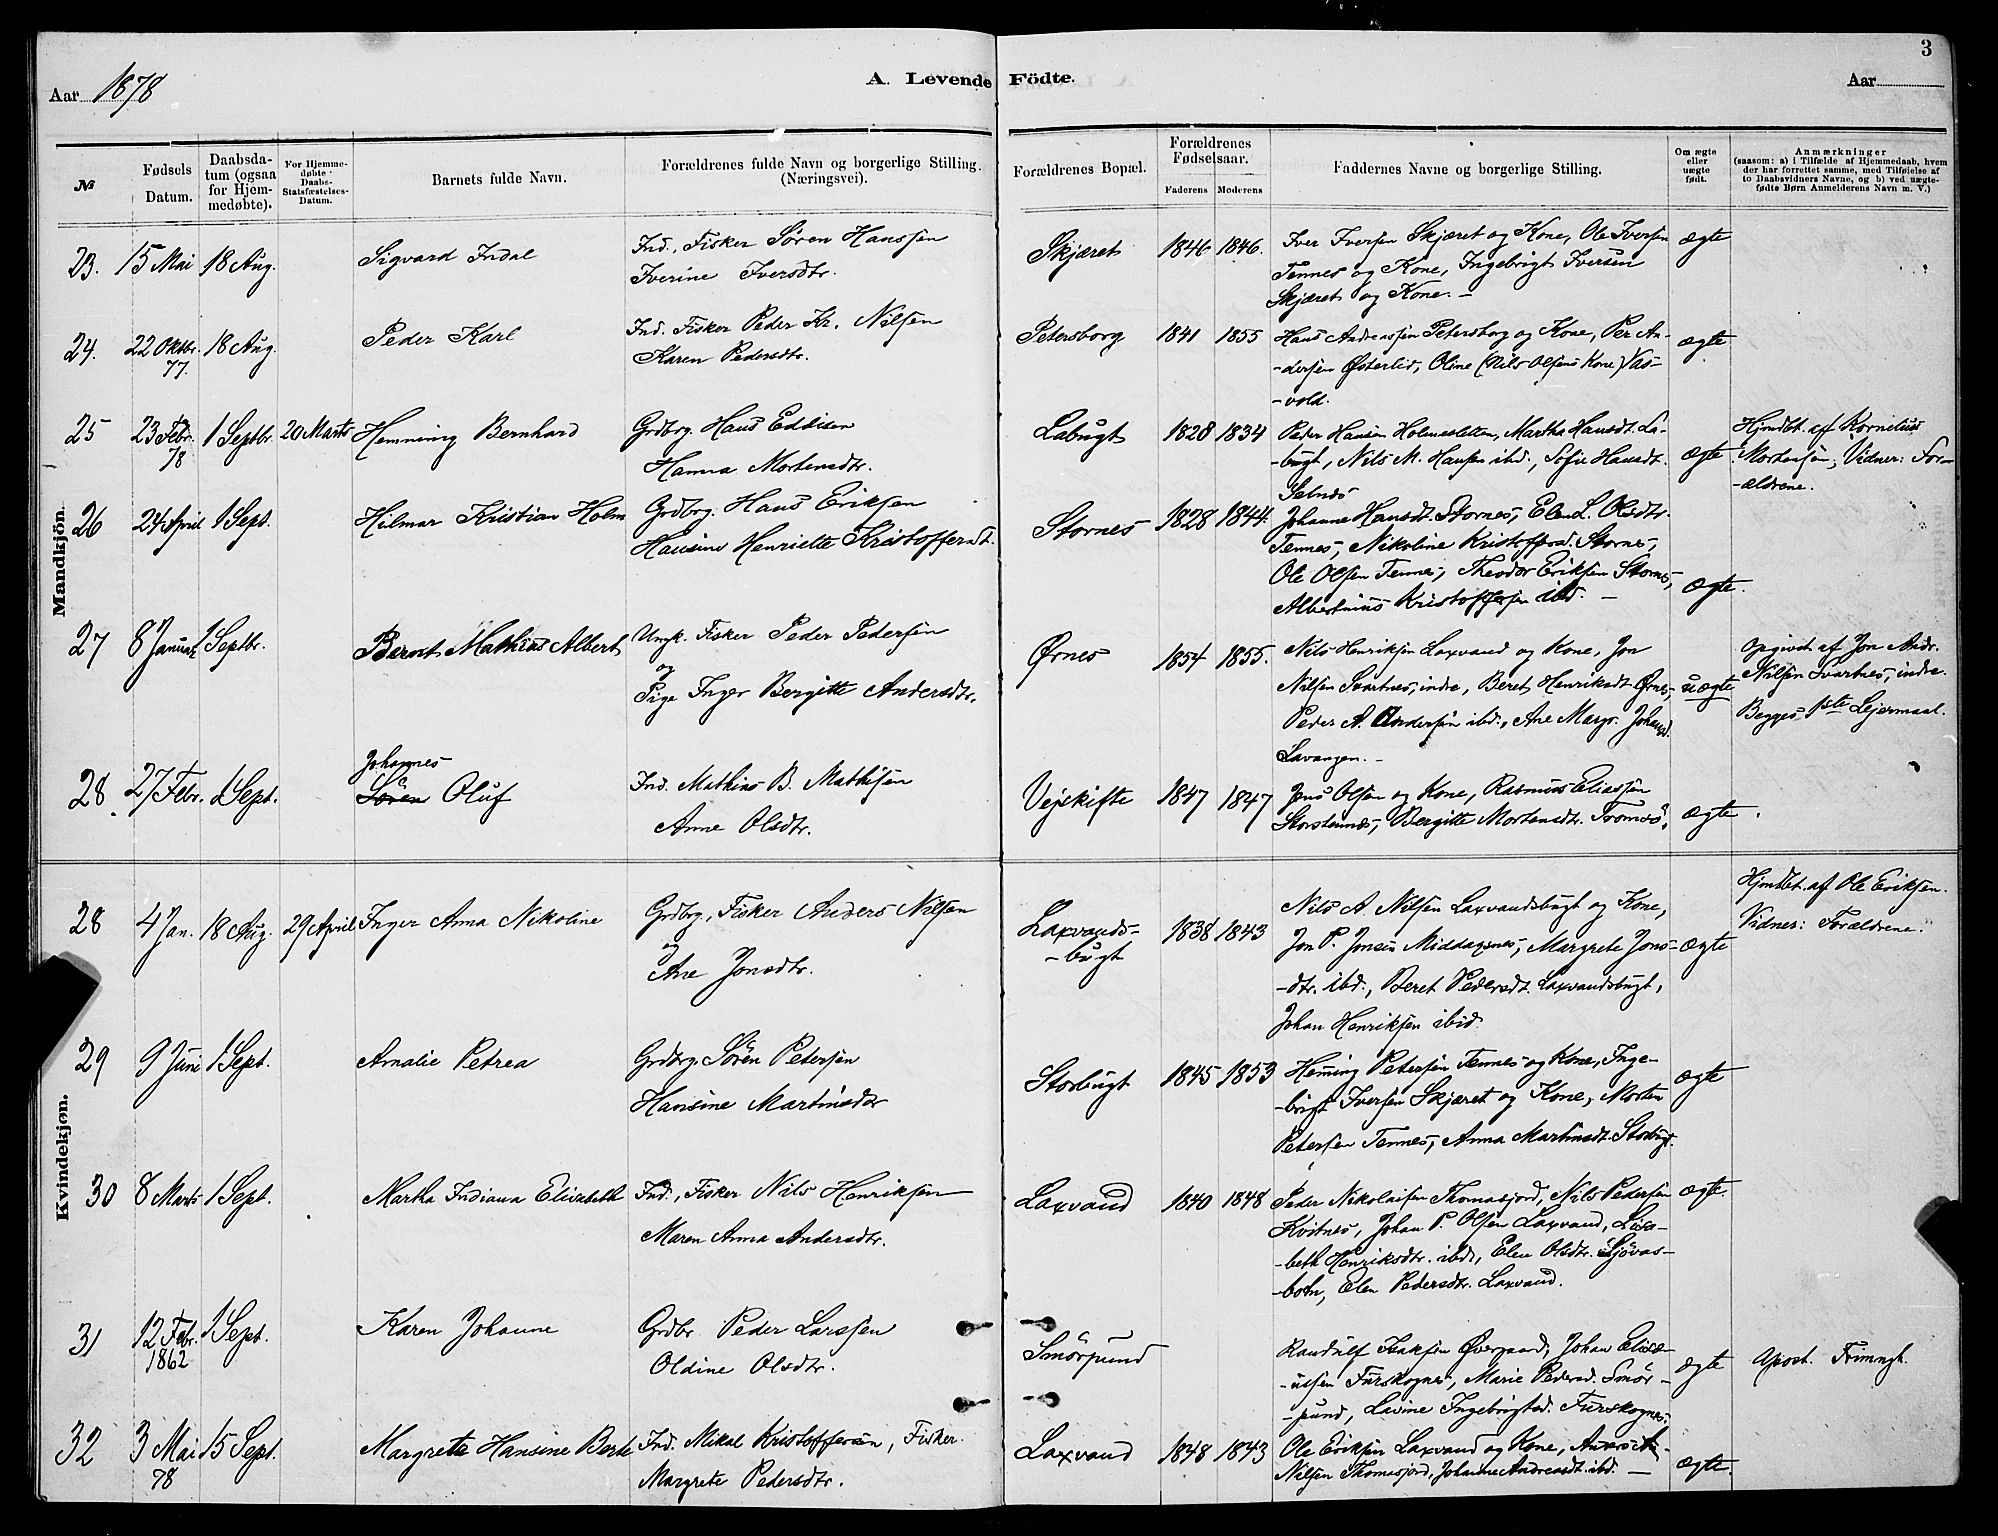 3
Aar 1878
A. Levende Födte.
Aar
№
Fødsels Datum.
Daabsda-
tum (ogsaa
for Hjem-
medøbte).
For Hjemme-
døbte
Daabs-
Statsfæstelses-
Datum.
Barnets fulde Navn.
Forældrenes fulde Navn og borgerlige Stilling.
(Næringsvei).
Forældrenes Bopæl.
Forældrenes
Fødselsaar.
Faderens Moderens
Faddernes Navne og borgerlige Stilling.
Om ægte
eller
uægte
født.
Anmærkninger
(saasom: a) i Tilfælde af Hjemmedaab, hvem
der har forrettet samme, med Tilføielse af
to Daabsvidners Navne, og b) ved uægte-
fødte Børn Anmelderens Navn m. V.)
Mandkjön.
23. 15 Mai 18 Aug. Sigvard Indal
Ind., Fisker Sören Hanssen
Iverine Iversdtr.
Skjæret 1846 1846.
Iver Iversen Skjæret og Kone, Ole Iversen
Tennes og Kone, Ingebrigt Iversen
Skjæret og Kone. –
ægte
24. 22 Oktbr. 77. 18 Aug. Peder Karl
Ind. Fisker Peder Kr. Nilsen
Karen Pedersdtr.
Petersborg 1841 1855
Hans Andreassen Petersborg og Kone, Per An-
-dersen Østerlid, Oline (Nils Olsens Kone) Vas-
-vold.
ægte
25 23 Febr. 78 1 Septbr. 20 Marts Hemming Bernhard
Grdbrg. Hans
Hanna Mortensdtr.
Labugt 1828 1834
Peder Hansen Holmesletten, Martha Hansdt. La-
-bugt, Nils M. Hansen ibd., Sofie Hansdt.
Selnes
ægte
Hjmdbt. af Kornelius
Mortensen, Vidner: For-
-ældrene.
26 24 April 1 Sept. Hilmar Kristian Holm
Grdbrg. Hans Eriksen
Hansine Henriette Kristoffersdt.
Stornes 1828 1844.
Johanne Hansdt. Stornes, Elen L. Olsdtr.
Tennes, Nikoline Kristoffersd. Stornes,
Ole Olsen Tennes, Theodor Eriksen Stornes,
Albertinius Kristoffersen ibd. –
ægte.
27 8 Januar 1 Septbr. Bernt Mathias Albert
Ungk. Fisker Peder Pedersen
og
Pige Inger Bergitte Andersdtr.
Ørnes 1854 1855.
Nils Henriksen Laxvand og Kone, Jon
Nilsen Svartnes, indre, Beret Henriksdt Ørnes,
Peder A. Andersen ibd., Ane Margr. Johansd.
Lavangen. –
uægte
Opgivet af Jon Andr.
Nilsen Svartnes, indre.
Begges 1ste Lejermaal.
28 27 Febr. 1 Sept. Johannes
Sören Oluf
Ind. Mathias B. Mathisen
Anne Olsdtr.
Vejskifte 1847 1847
Jens Olsen og Kone, Rasmus Eliassen
Storsteinnes, Bergitte Mortensdtr. Tromsö.
ægte
Kvindekjøn.
28 4 Jan. 18 Aug. 29 April Inger Anna Nikoline
Grdbrg., Fisker Anders Nilsen
og
Ane Jonsdtr.
Laxvands-
-bugt 1838 1843
Nils A. Nilsen Laxvandsbugt og Kone,
Jon P. Jensen Middagsnes, Margrete Jons-
-dtr. ibd., Beret Pedersdt. Laxvandsbugt,
Johan Henriksen ibid.
ægte
Hjmdbt. af Ole Eriksen.
Vidnes: Forældrene.
29 9 Juni 1 Sept. Amalie Petrea
Grdbrg. Sören Petersen
Hansine Martinsdtr
Storbugt 1845 1853
Heming Petersen Tennes og Kone, Inge-
-brigt Iversen Skjæret og Kone, Morten
Petersen Tennes, Anna Martinsdt. Storbugt.
ægte
30 8 Marts 1 Sept. Martha Indiana Elisabeth
Ind., Fisker Nils Henriksen
Maren Anna Andersdtr.
Laxvand 1840 1848
Peder Nikolaisen Thomasjord, Nils Pedersen
Kvitnes, Johan P. Olsen Laxvand, Lisa-
-beth Henriksdtr. ibd., Elen Olsdtr. Sjövas-
-botn, Elen Pedersdtr. Laxvand.
ægte.
31 12 Febr. 1862 1 Sept. Karen Johanne
Grdbr. Peder Larssen
Oldine Olsdtr.
Smörpund
Randulf Isaksen Øvergaard, Johan Elisæ-
-ussen Furskognes, Marie Pedersd. Smör-
-pund, Lavine Ingebrigtsd. Furskognes.
ægte
Apost. Frimngh.
32 3 Mai 78 15 Sept. Margrete Hansine Berte
Ind. Mikal Kristoffersen, Fisker.
Margrete Pedersdtr.
Laxvand 1848 1843
Ole Eriksen Laxvand og Kone, Anders A-
Nilsen Thomasjord, Johanne Andreasdt. ibd. –
ægte.